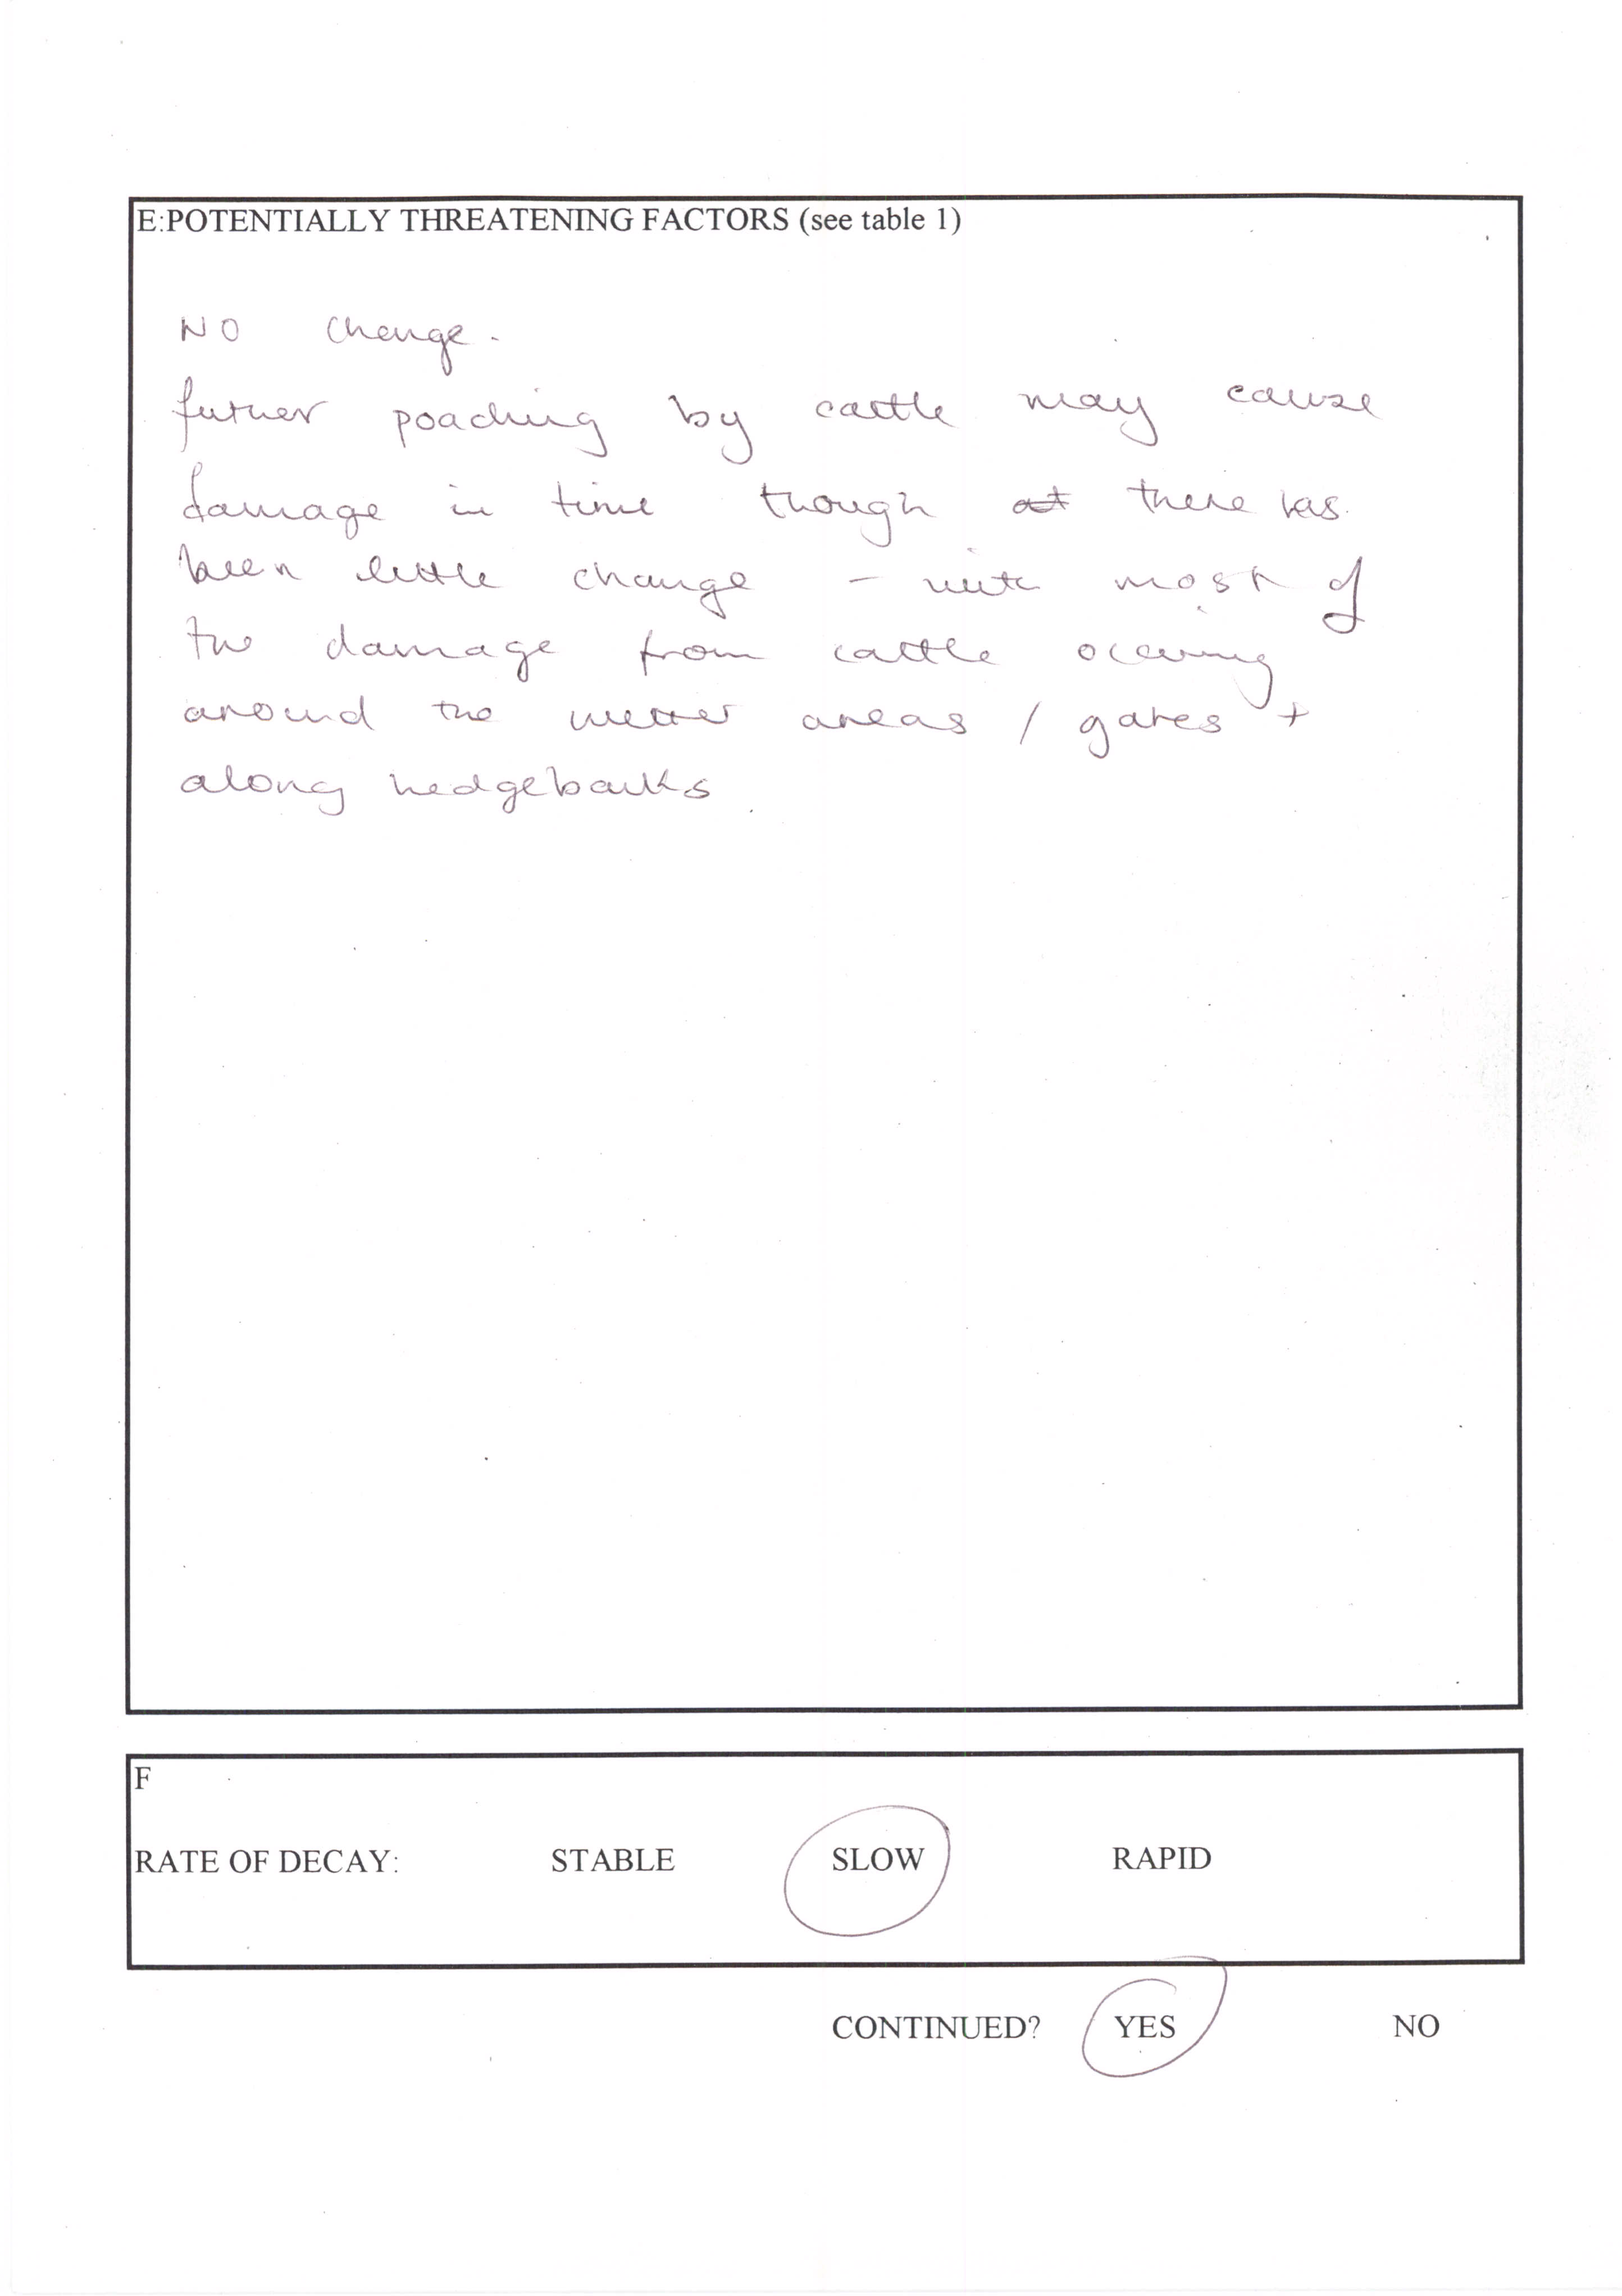 E:POTENTIALLY THREATENING FACTORS (see table 1)
NO change.
further poaching by cattle may cause
damage in time though there has
been little change - with most of
the damage from cattle occuring
around the wetter areas / gates +
along hedgebanks
F
RATE OF DECAY: STABLE SLOW RAPID
CONTINUED? YES NO